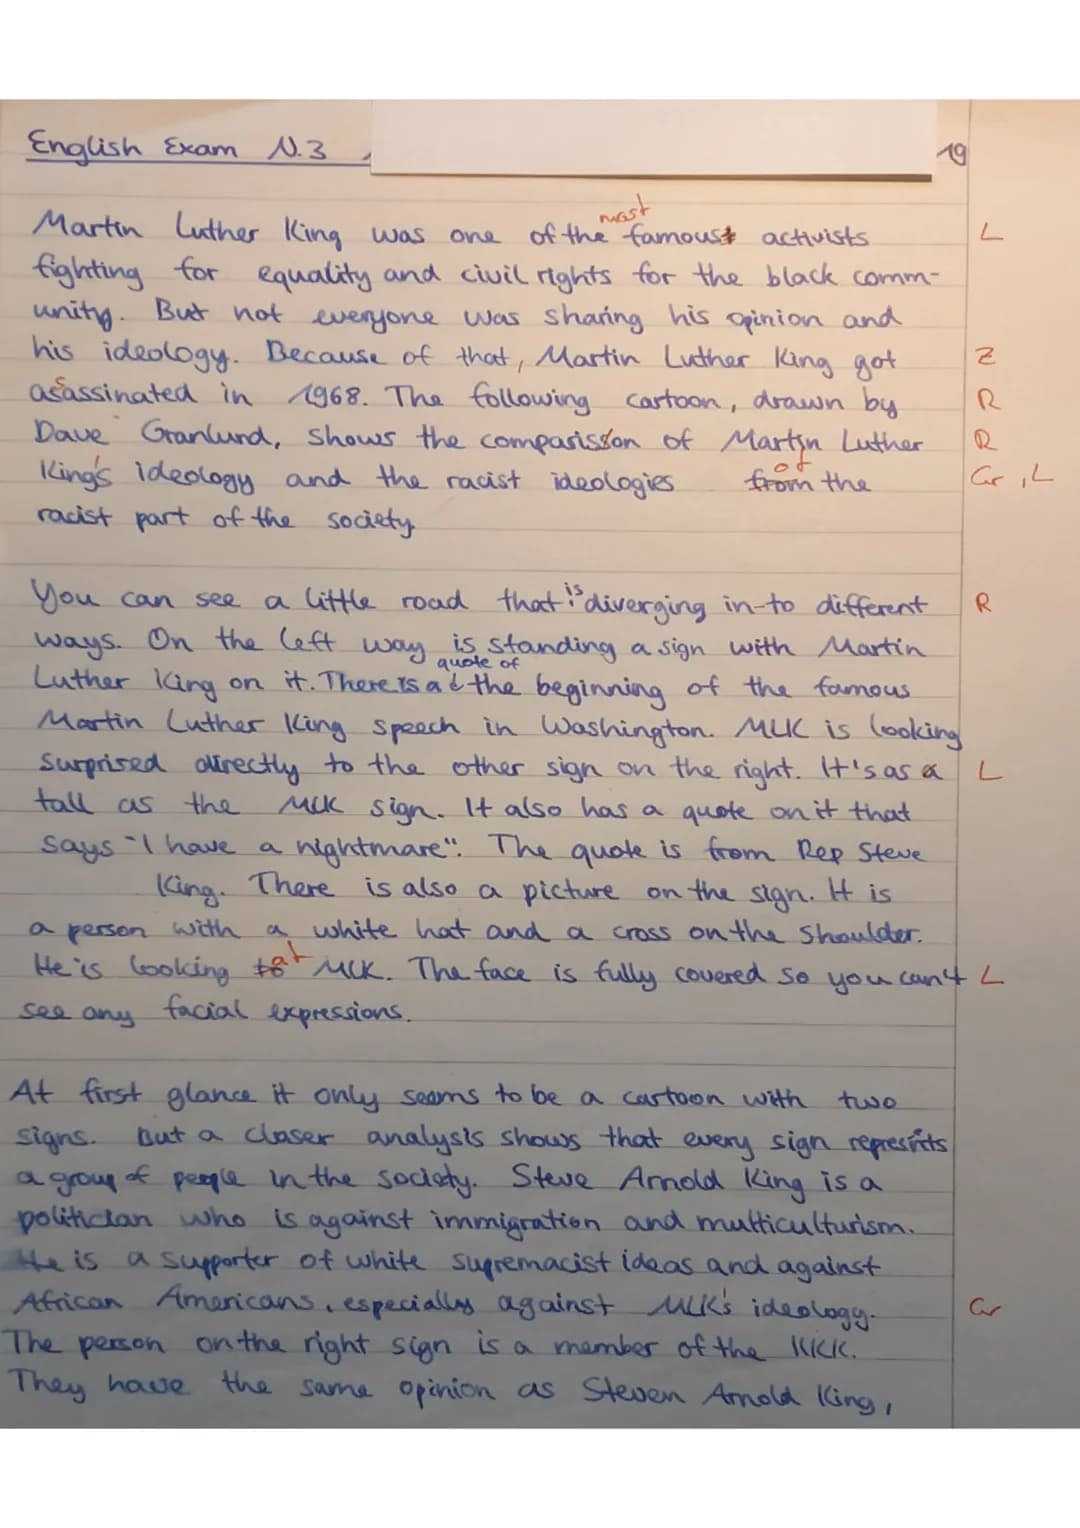 English Exam N.3
19
most
Martin Luther King was one of the famoust activists L
fighting for equality and civil rights for the black comm-
unity. But not everyone was sharing his opinion and
his ideology. Because of that, Martin Luther King got Z
asassinated in 1968. The following cartoon, drawn by R
Dave Granlund, shows the comparission of Martin Luther R
of
King's ideology and the racist ideologies from the Gr, L
racist part of the society.
You can see a little road that is diverging in-to different R
ways. On the left way is standing a sign with Martin
quote of
Luther King on it. There is a the beginning of the famous
Martin Luther King speech in Washington. MLK is looking
surprised directly to the other sign on the right. It's as a L
tall as the MLK sign. It also has a quote on it that
says "I have a nightmare". The quote is from Rep Steve
King. There is also a picture on the sign. It is
a person with a white hat and a cross on the shoulder.
at
He is looking to MLK. The face is fully covered so you can't L
see any facial expressions.
At first glance it only seems to be a cartoon with two
signs. But a closer analysis shows that every sign represnts
a group of people in the society. Steve Arnold King is a
politician who is against immigration and multiculturism.
He is a supporter of white supremacist ideas and against
African Americans, especially against MLK's ideology. Gr
The person on the right sign is a member of the KKK.
They have the same opinion as Steven Arnold King,